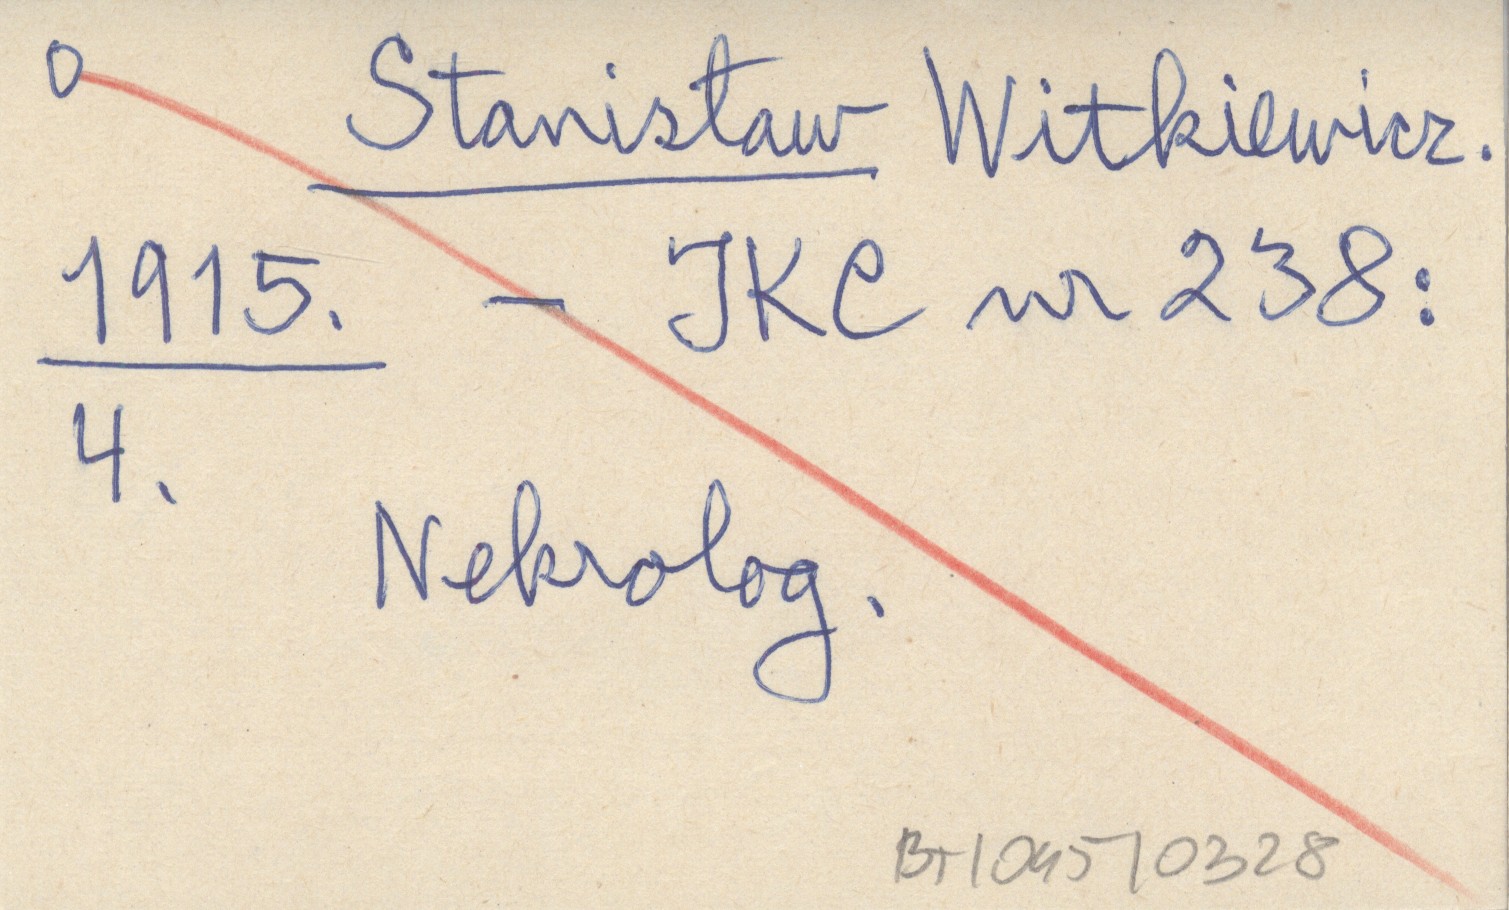 O Stanisław Witkiewicz.
1915. – IKC nr 238:
4.
Nekrolog.
BT/045/0328